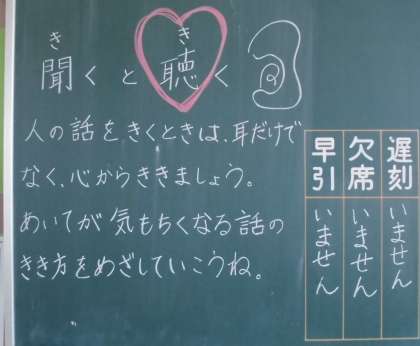 聞くと聴く
人の話をきくときは、耳だけで
なく、心からききましょう。
あいてが気もちくなる話の
きき方をめざしていこうね。
遅刻 いません
欠席 いません
早引 いません